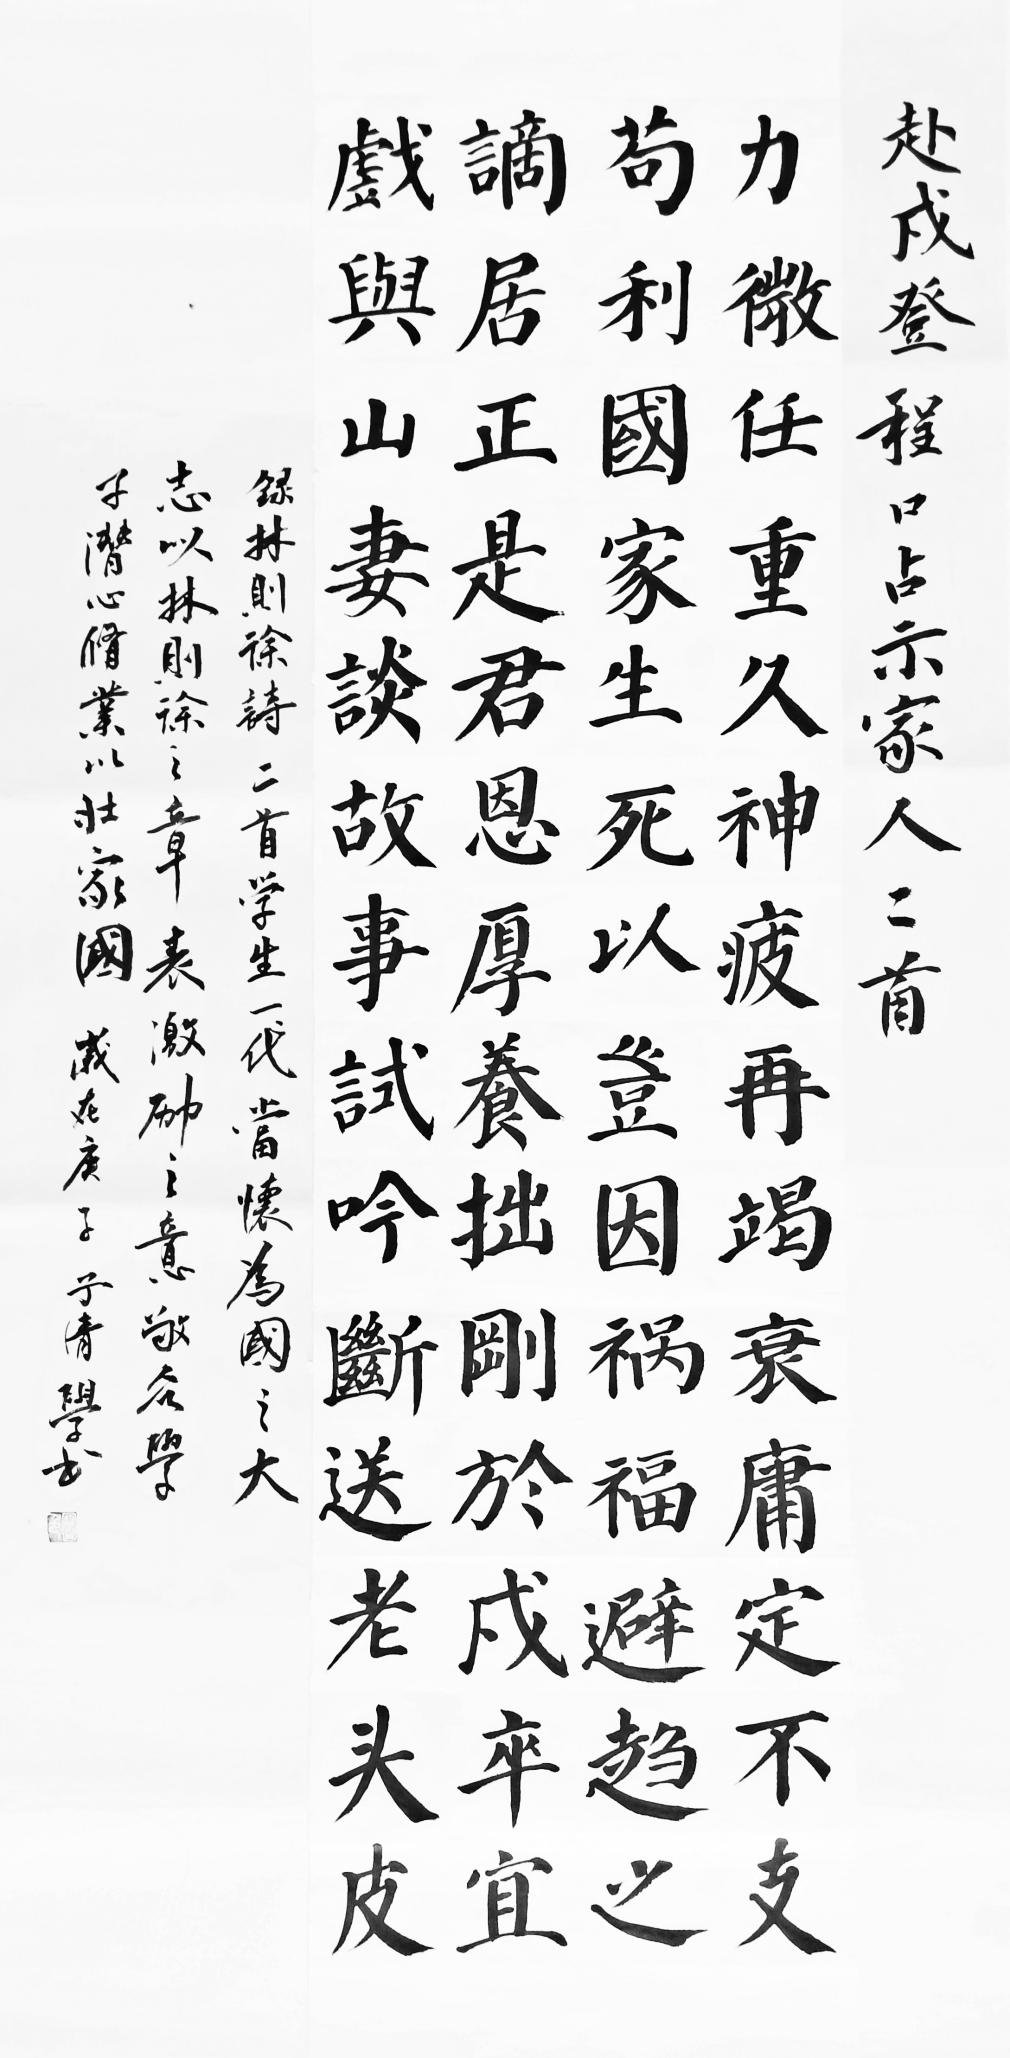 赴戍登程口占示家人二首
力微任重久神疲再竭衰庸定不支
苟利國家生死以豈因祸福避趋之
謫居正是君恩厚養拙剛於戍卒宜
戲與山妻談故事試吟斷送老头皮
録林則徐詩二首学生一代當懷為國之大
志以林則徐之章表激励之意敬众學
子潛心脩業以壯家國 歲在庚子 子清學书